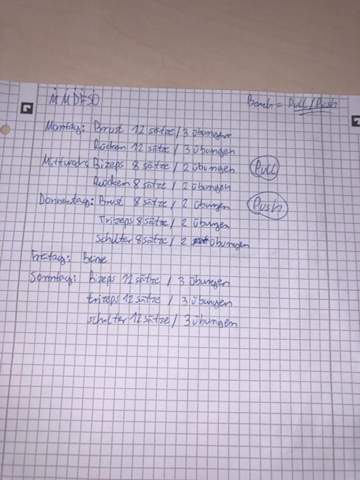 M M D F S O
Bereich = Pull / Push
Montag: Brust 12 sätze / 3 übungen
Rücken 12 sätze / 3 übungen
Mittwoch: Bizeps 8 sätze / 2 übungen Pull
Rücken 8 sätze / 2 übungen
Donnerstag: Brust 8 sätze / 2 übungen Push
Trizeps 8 sätze / 2 übungen
Schulter 8 sätze / 2 übungen
Freitag: beine
Sonntag: Bizeps 12 sätze / 3 übungen
trizeps 12 sätze / 3 übungen
schulter 12 sätze / 3 übungen